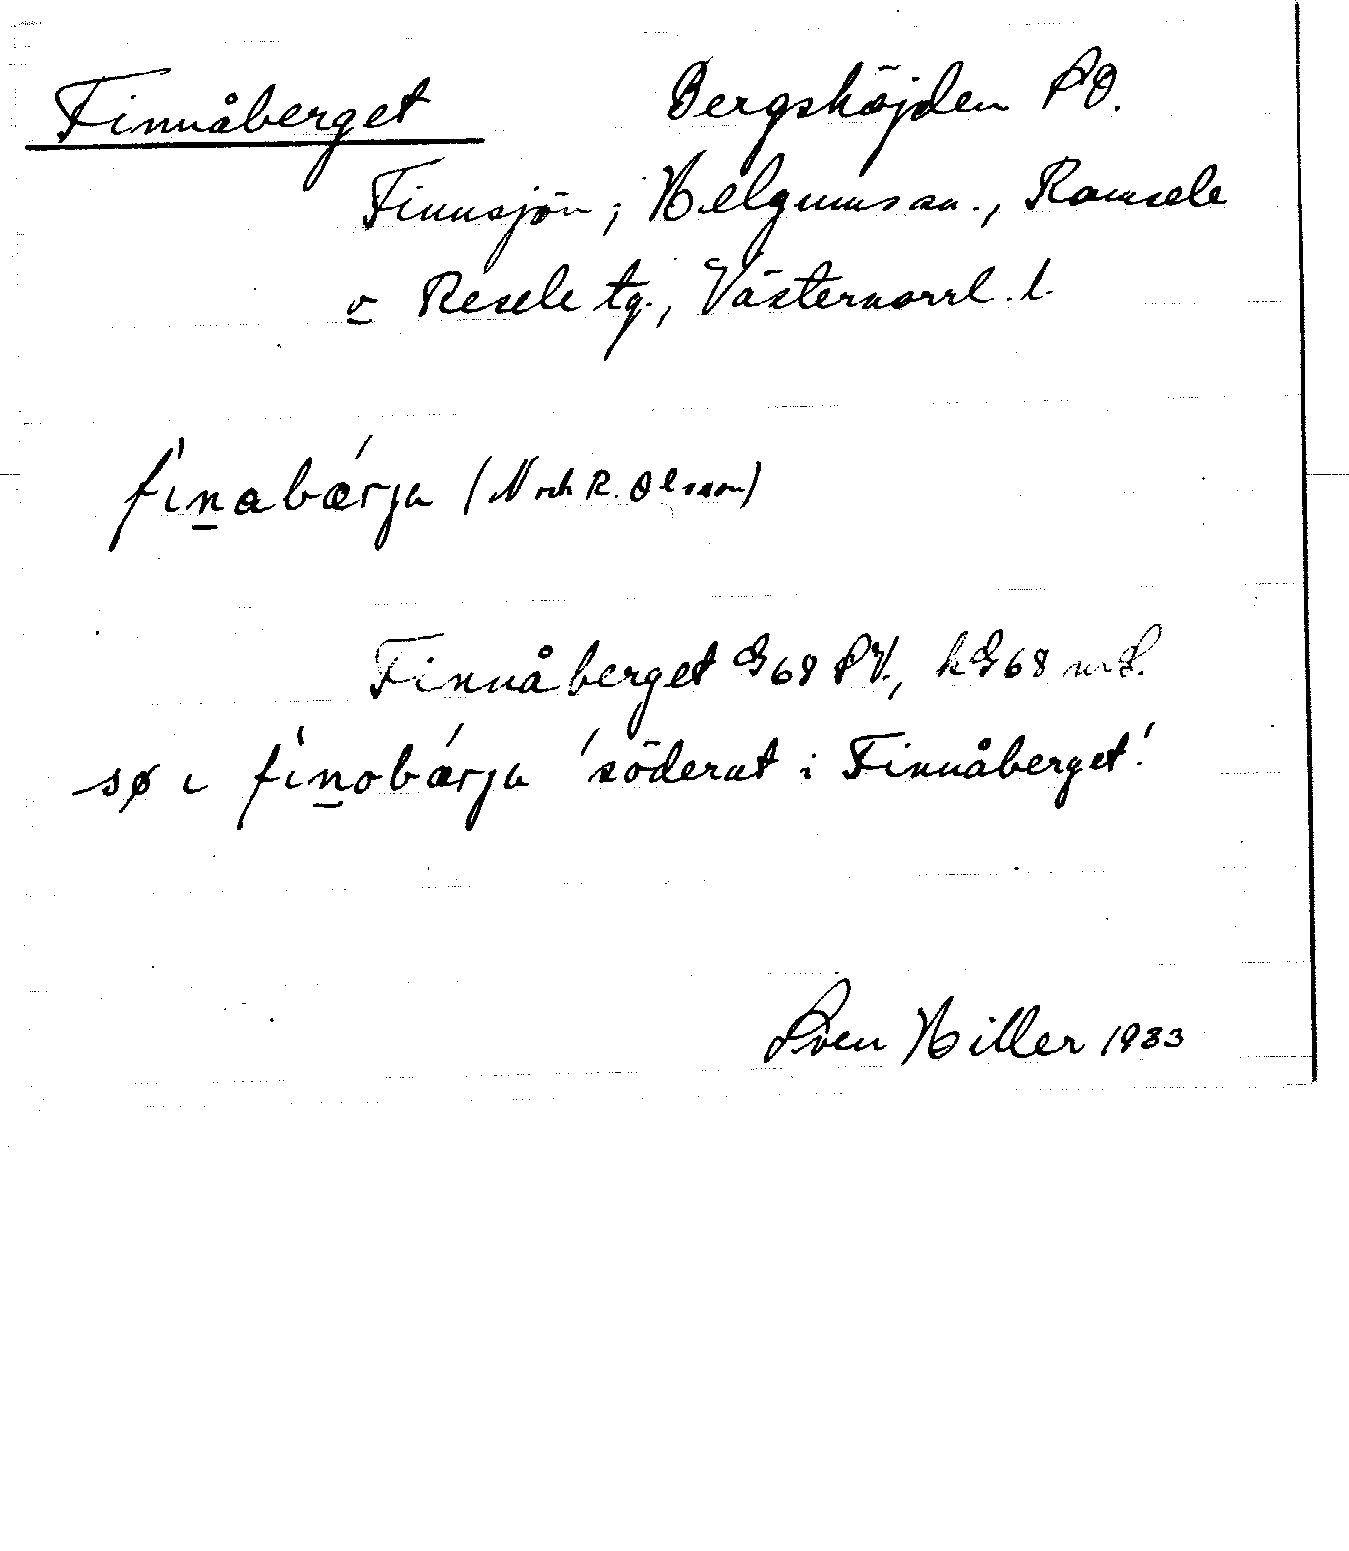 Finnåberget Bergshöjden SO.
Finnsjön; Helgums sn., Ramsele
o Resele tg., Västernorrl. l.
fìnabǽrja (N och R. Olsson)
Finnåberget G68 SV., hG68 m S.
sø ı fìnobǽrja 'söderut i Finnåberget'.
Sven Hiller 1933